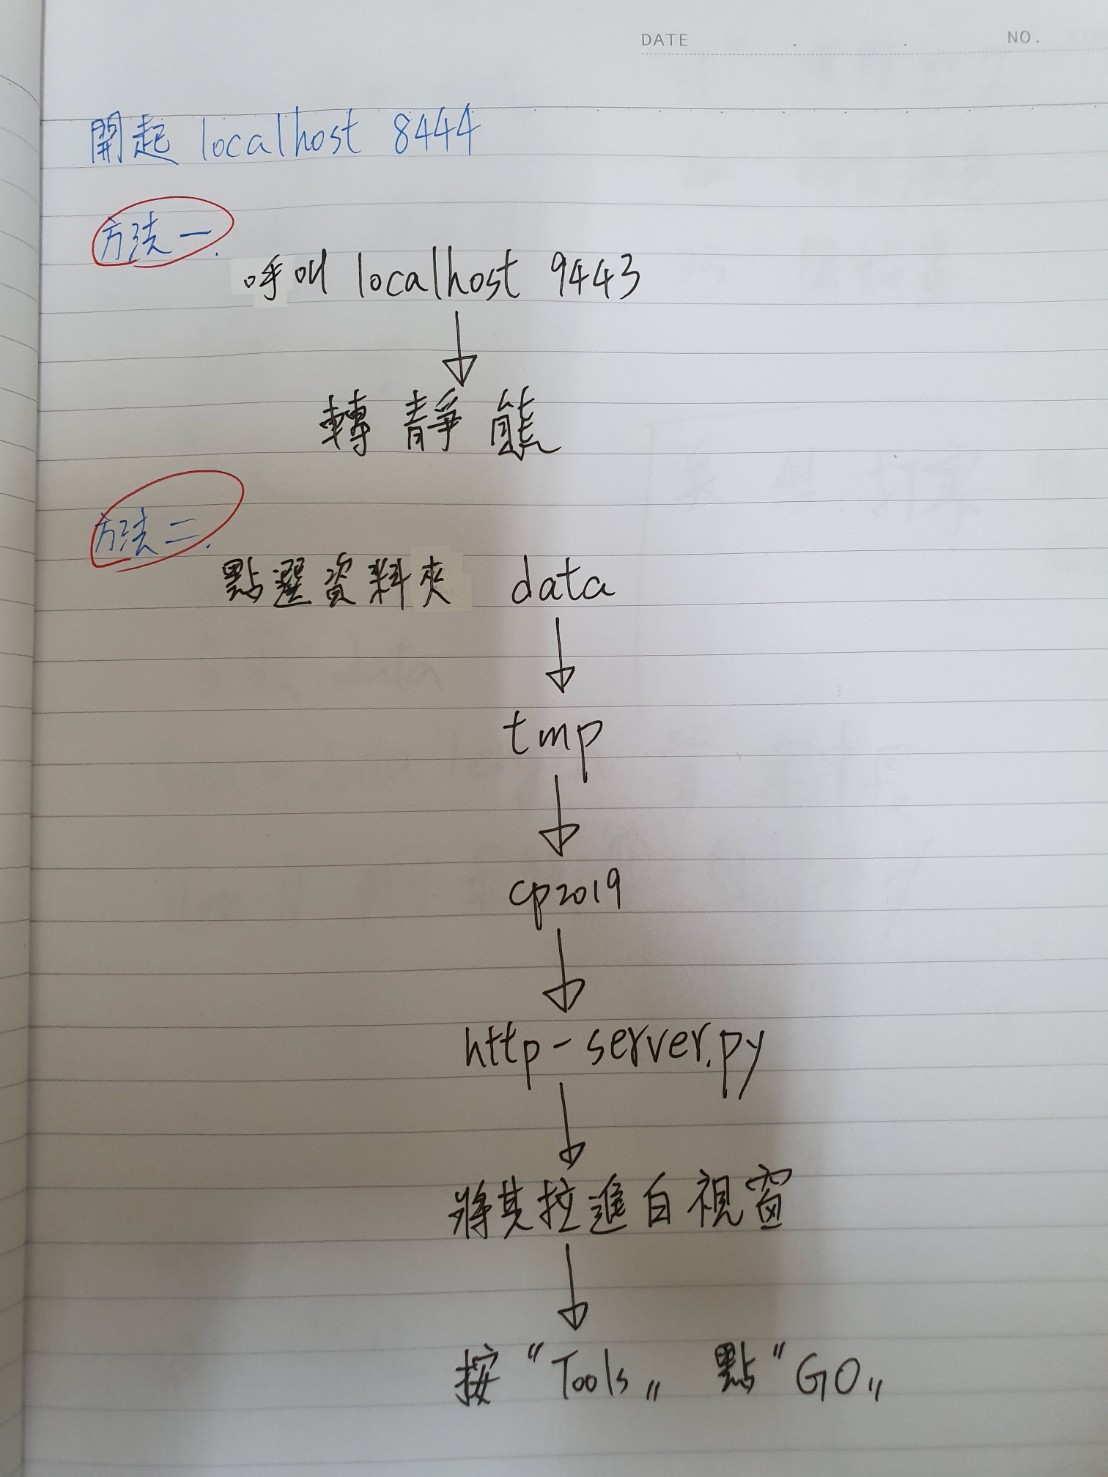 DATE . . NO.
開起 localhost 8444
方法一.
呼叫 localhost 9443
轉靜態
方法二.
點選資料夾 data
tmp
cp2019
http-server.py
將其拉進白視窗
按“Tools„ 點“GO„